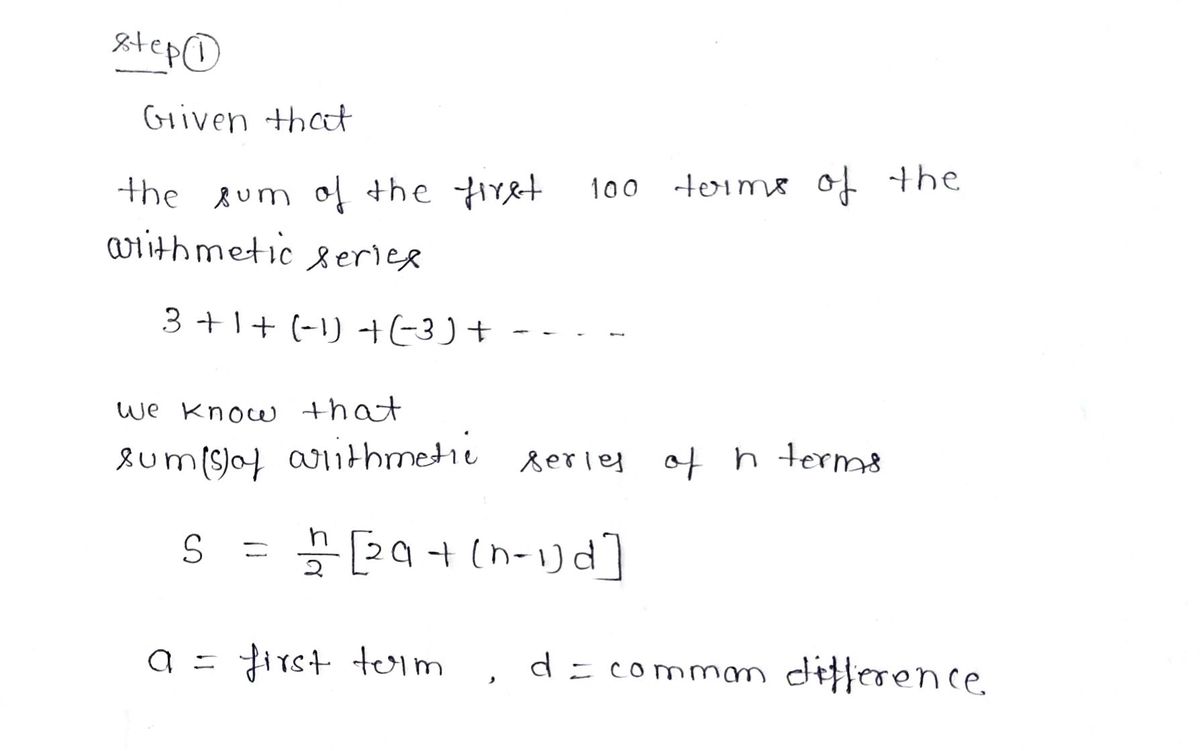 step ①
Given that
the sum of the first 100 terms of the
arithmetic series
3 + 1 + (-1) + (-3) + - - - - -
we know that
sum(s)of arithmetic series of n terms
S = n/2 [2a + (n-1)d]
a = first term , d = common difference